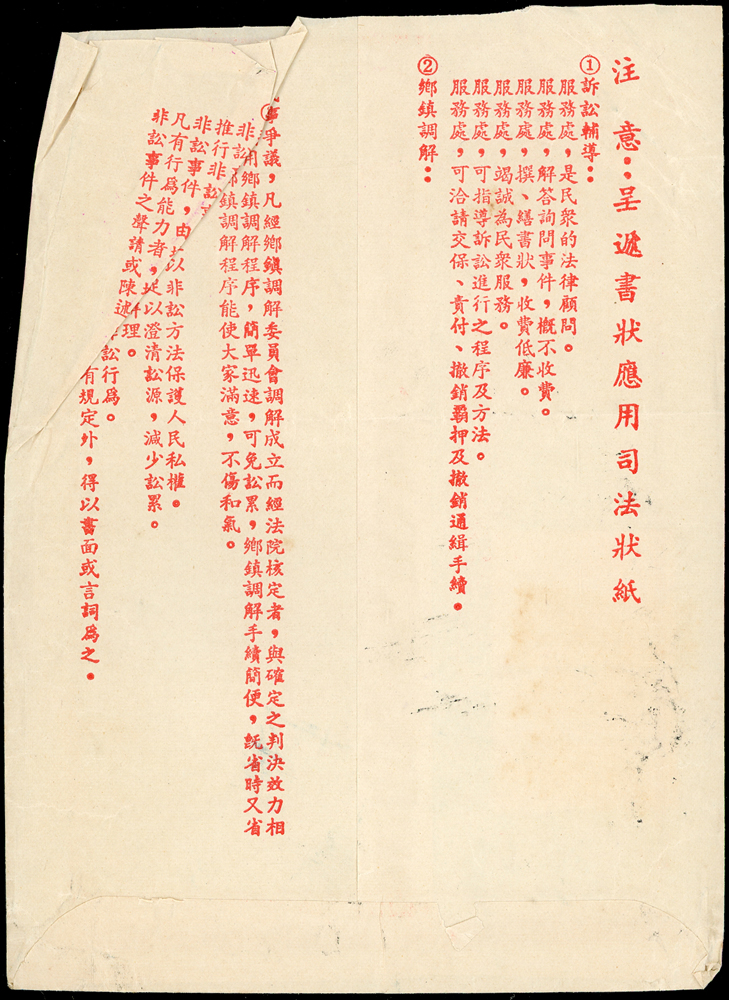 注意：呈遞書狀應用司法狀紙
①訴訟輔導：
服務處，是民眾的法律顧問。
服務處，解答詢問事件，概不收費。
服務處，撰、繕書狀，收費低廉。
服務處，竭誠為民眾服務。
服務處，可指導訴訟進行之程序及方法。
服務處，可洽請交保、責付、撤銷羈押及撤銷通緝手續。
②鄉鎮調解：
事爭議，凡經鄉鎮調解委員會調解成立而經法院核定者，與確定之判決效力相
用鄉鎮調解程序，簡單迅速，可免訟累，鄉鎮調解手續簡便，既省時又省
鎮調解程序能使大家滿意，不傷和氣。
非訟
推行非訟
非訟事件，由
凡有行為能力者，
非訟事件之聲請或陳述
以非訟方法保護人民私權。
足以澄清訟源，減少訟累。
理。
訟行為。
有規定外，得以書面或言詞為之。